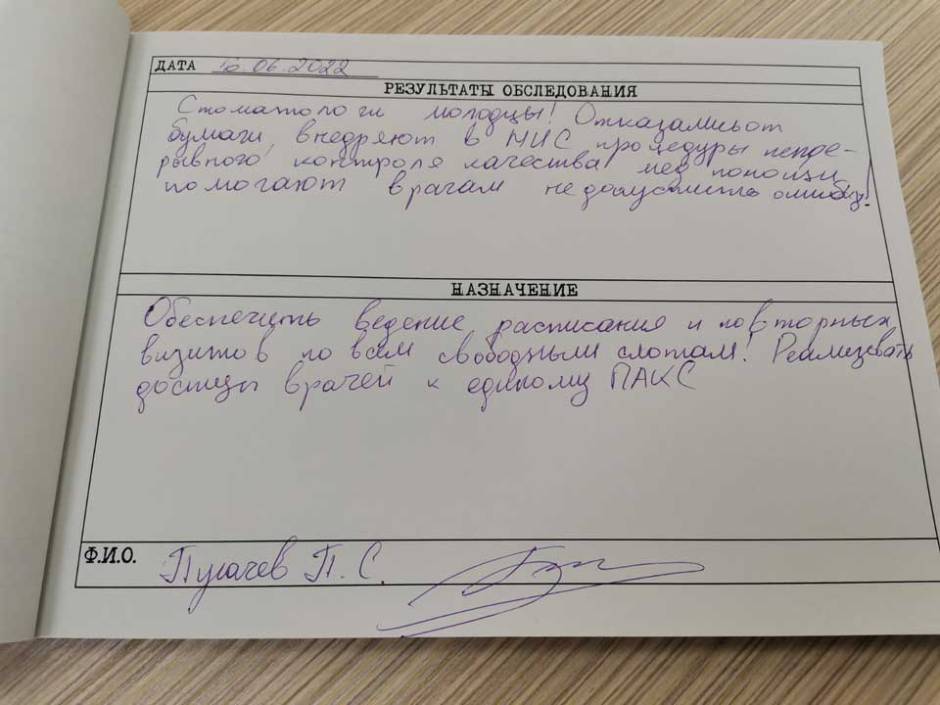 ДАТА 16.06.2022
РЕЗУЛЬТАТЫ ОБСЛЕДОВАНИЯ
Стоматологи молодцы! Отказались от
бумаги, внедряют в МИС процедуры непре-
рывного контроля качества мед помощи
помогают врачам не допустить ошибку!
НАЗНАЧЕНИЕ
Обеспечить ведение расписания и повторных
визитов по всем свободным слотам! Реализовать
доступы врачей к единому ПАКС
Ф.И.О. Пугачев П. С.